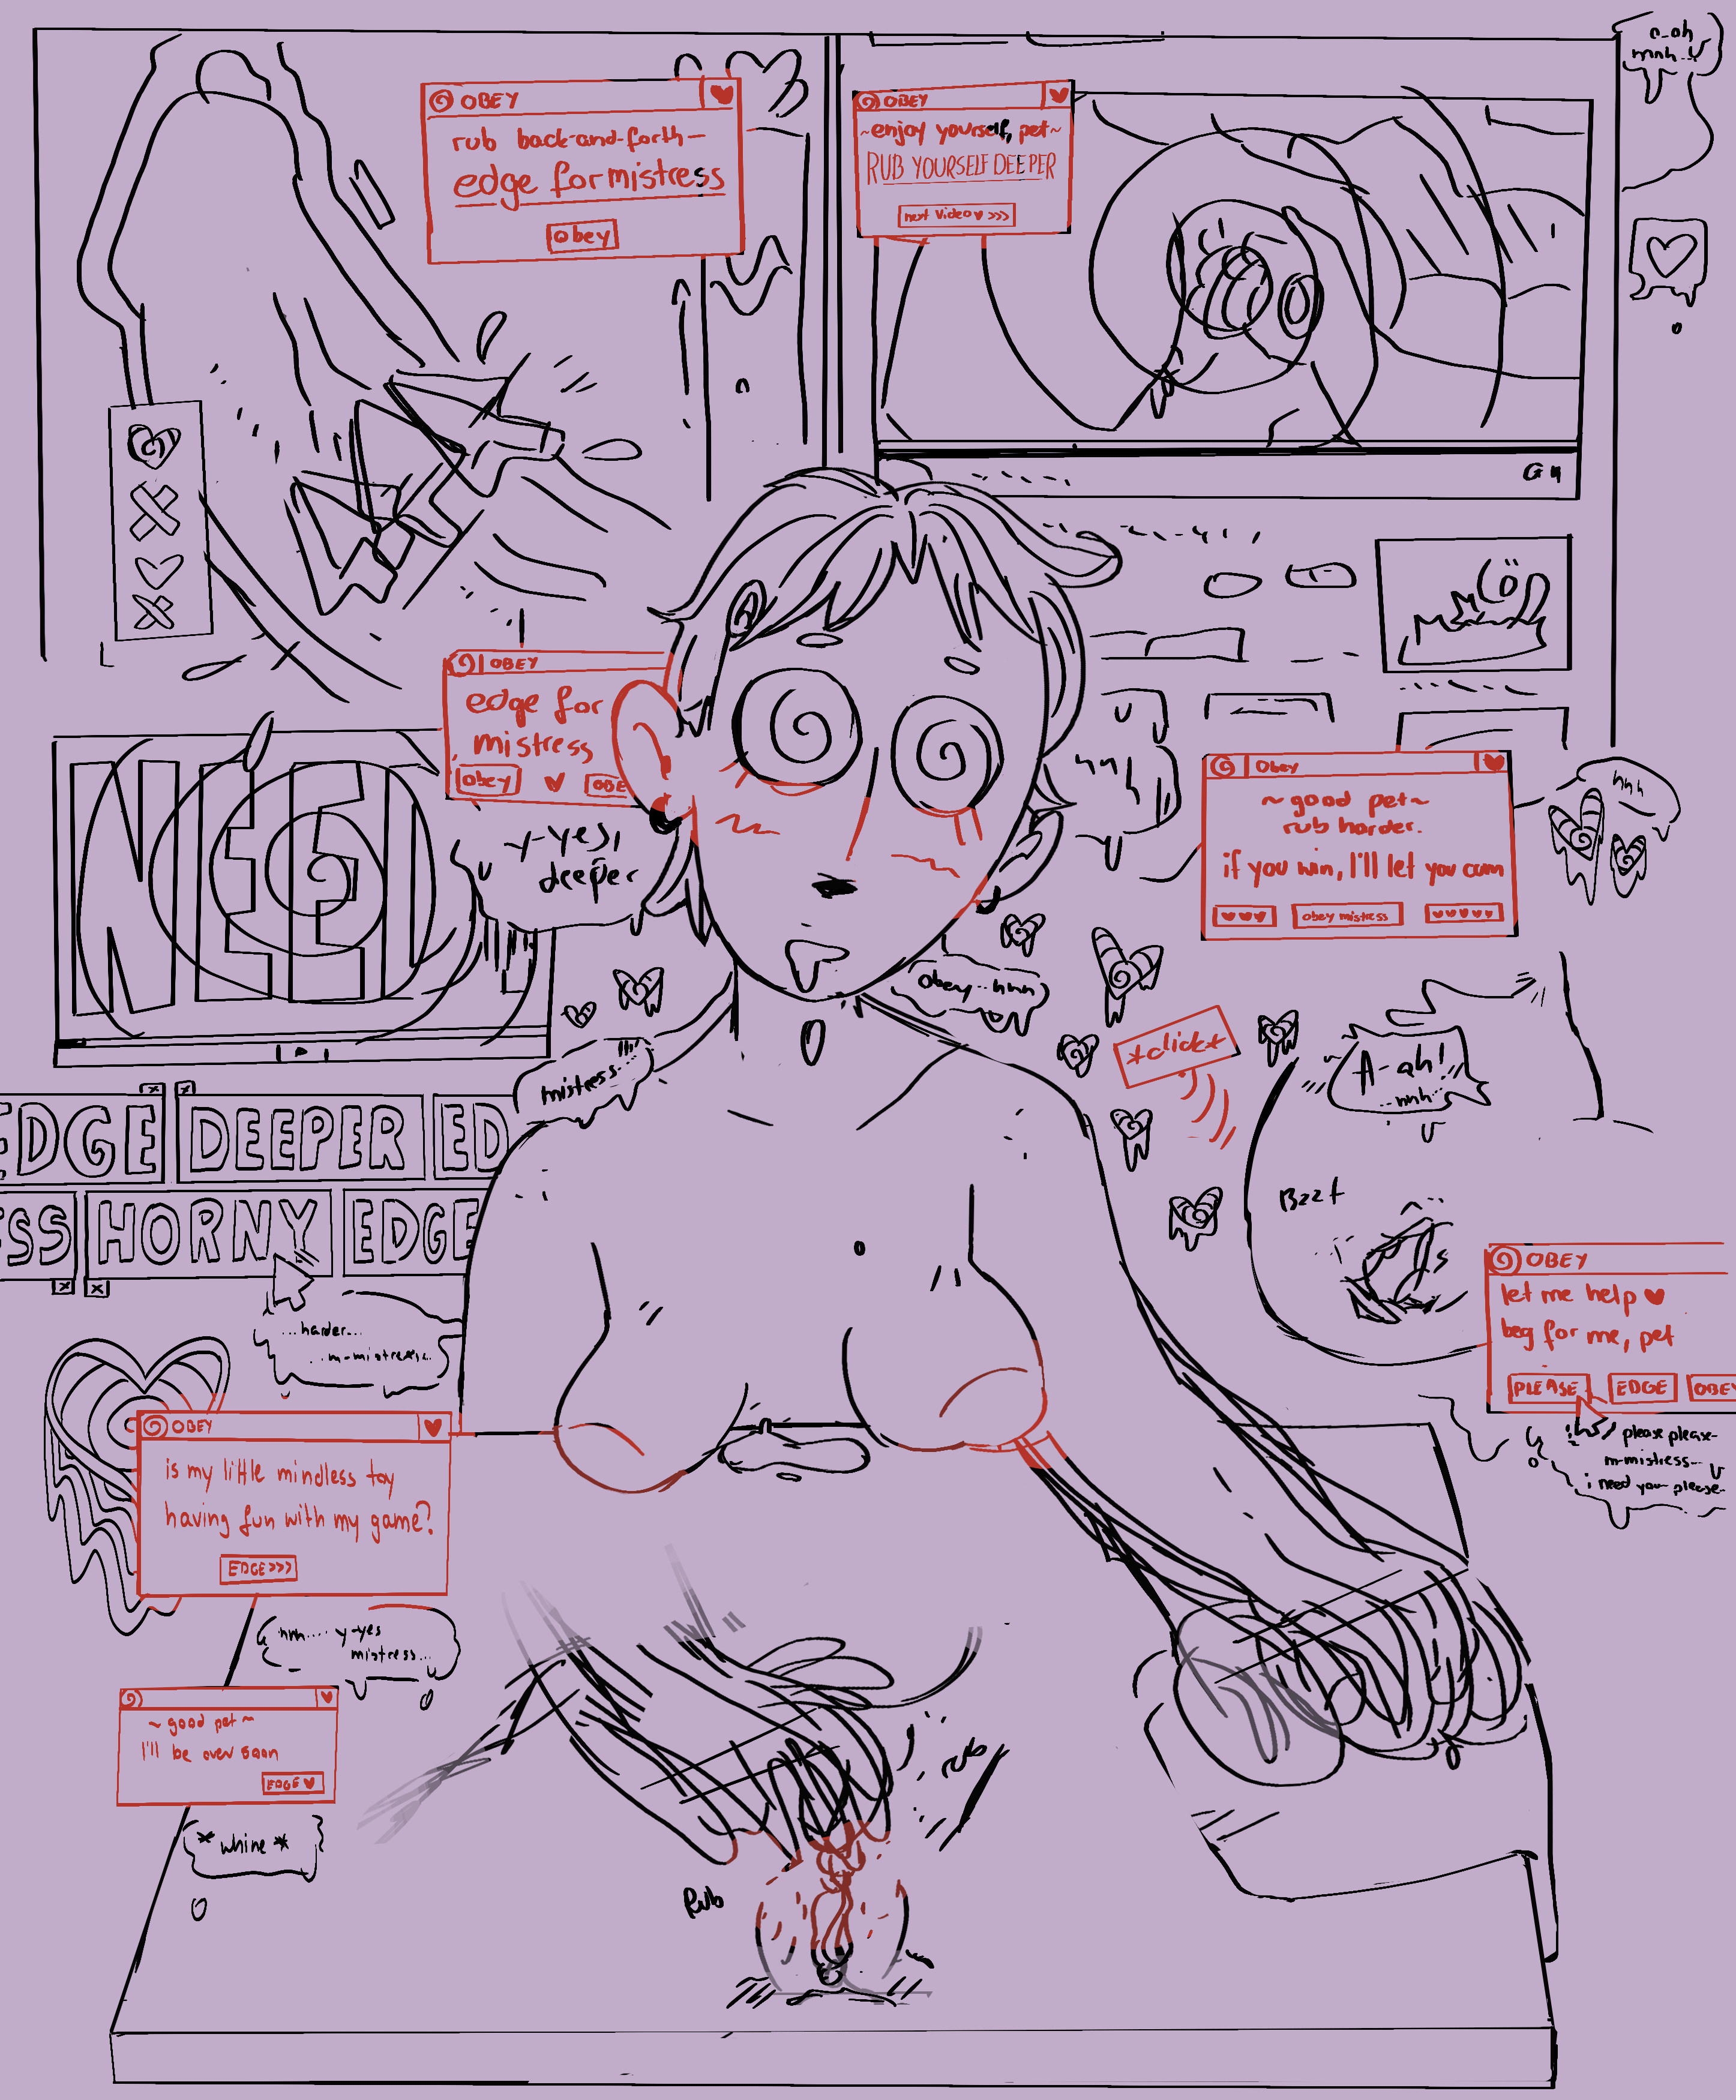 a-ah
mnh...
OBEY
rub back-and-forth-
edge for mistress
obey
OBEY
~enjoy yourself, pet~
RUB YOURSELF DEEPER
next video >>>
OBEY
edge for
mistress
obey
OBE
y-yes,
deeper
nnh
hhh
Obey
~good pet~
rub harder.
if you win, I'll let you cum
obey mistress
NEED
obey...hnn
mistress...
*click*
A-ah!
...nnh...
EDGE
DEEPER
ED
ESS
HORNY
EDGE
Bzzt
OBEY
let me help
beg for me, pet
PLEASE
EDGE
OBEY
...harder...
...m-mistress...
please please-
m-mistress...
i need you please-
OBEY
is my little mindless toy
having fun with my game?
EDGE>>>
hnh.... y-yes
mistress...
~good pet~
I'll be over soon
EDGE
*whine*
rub
Rub